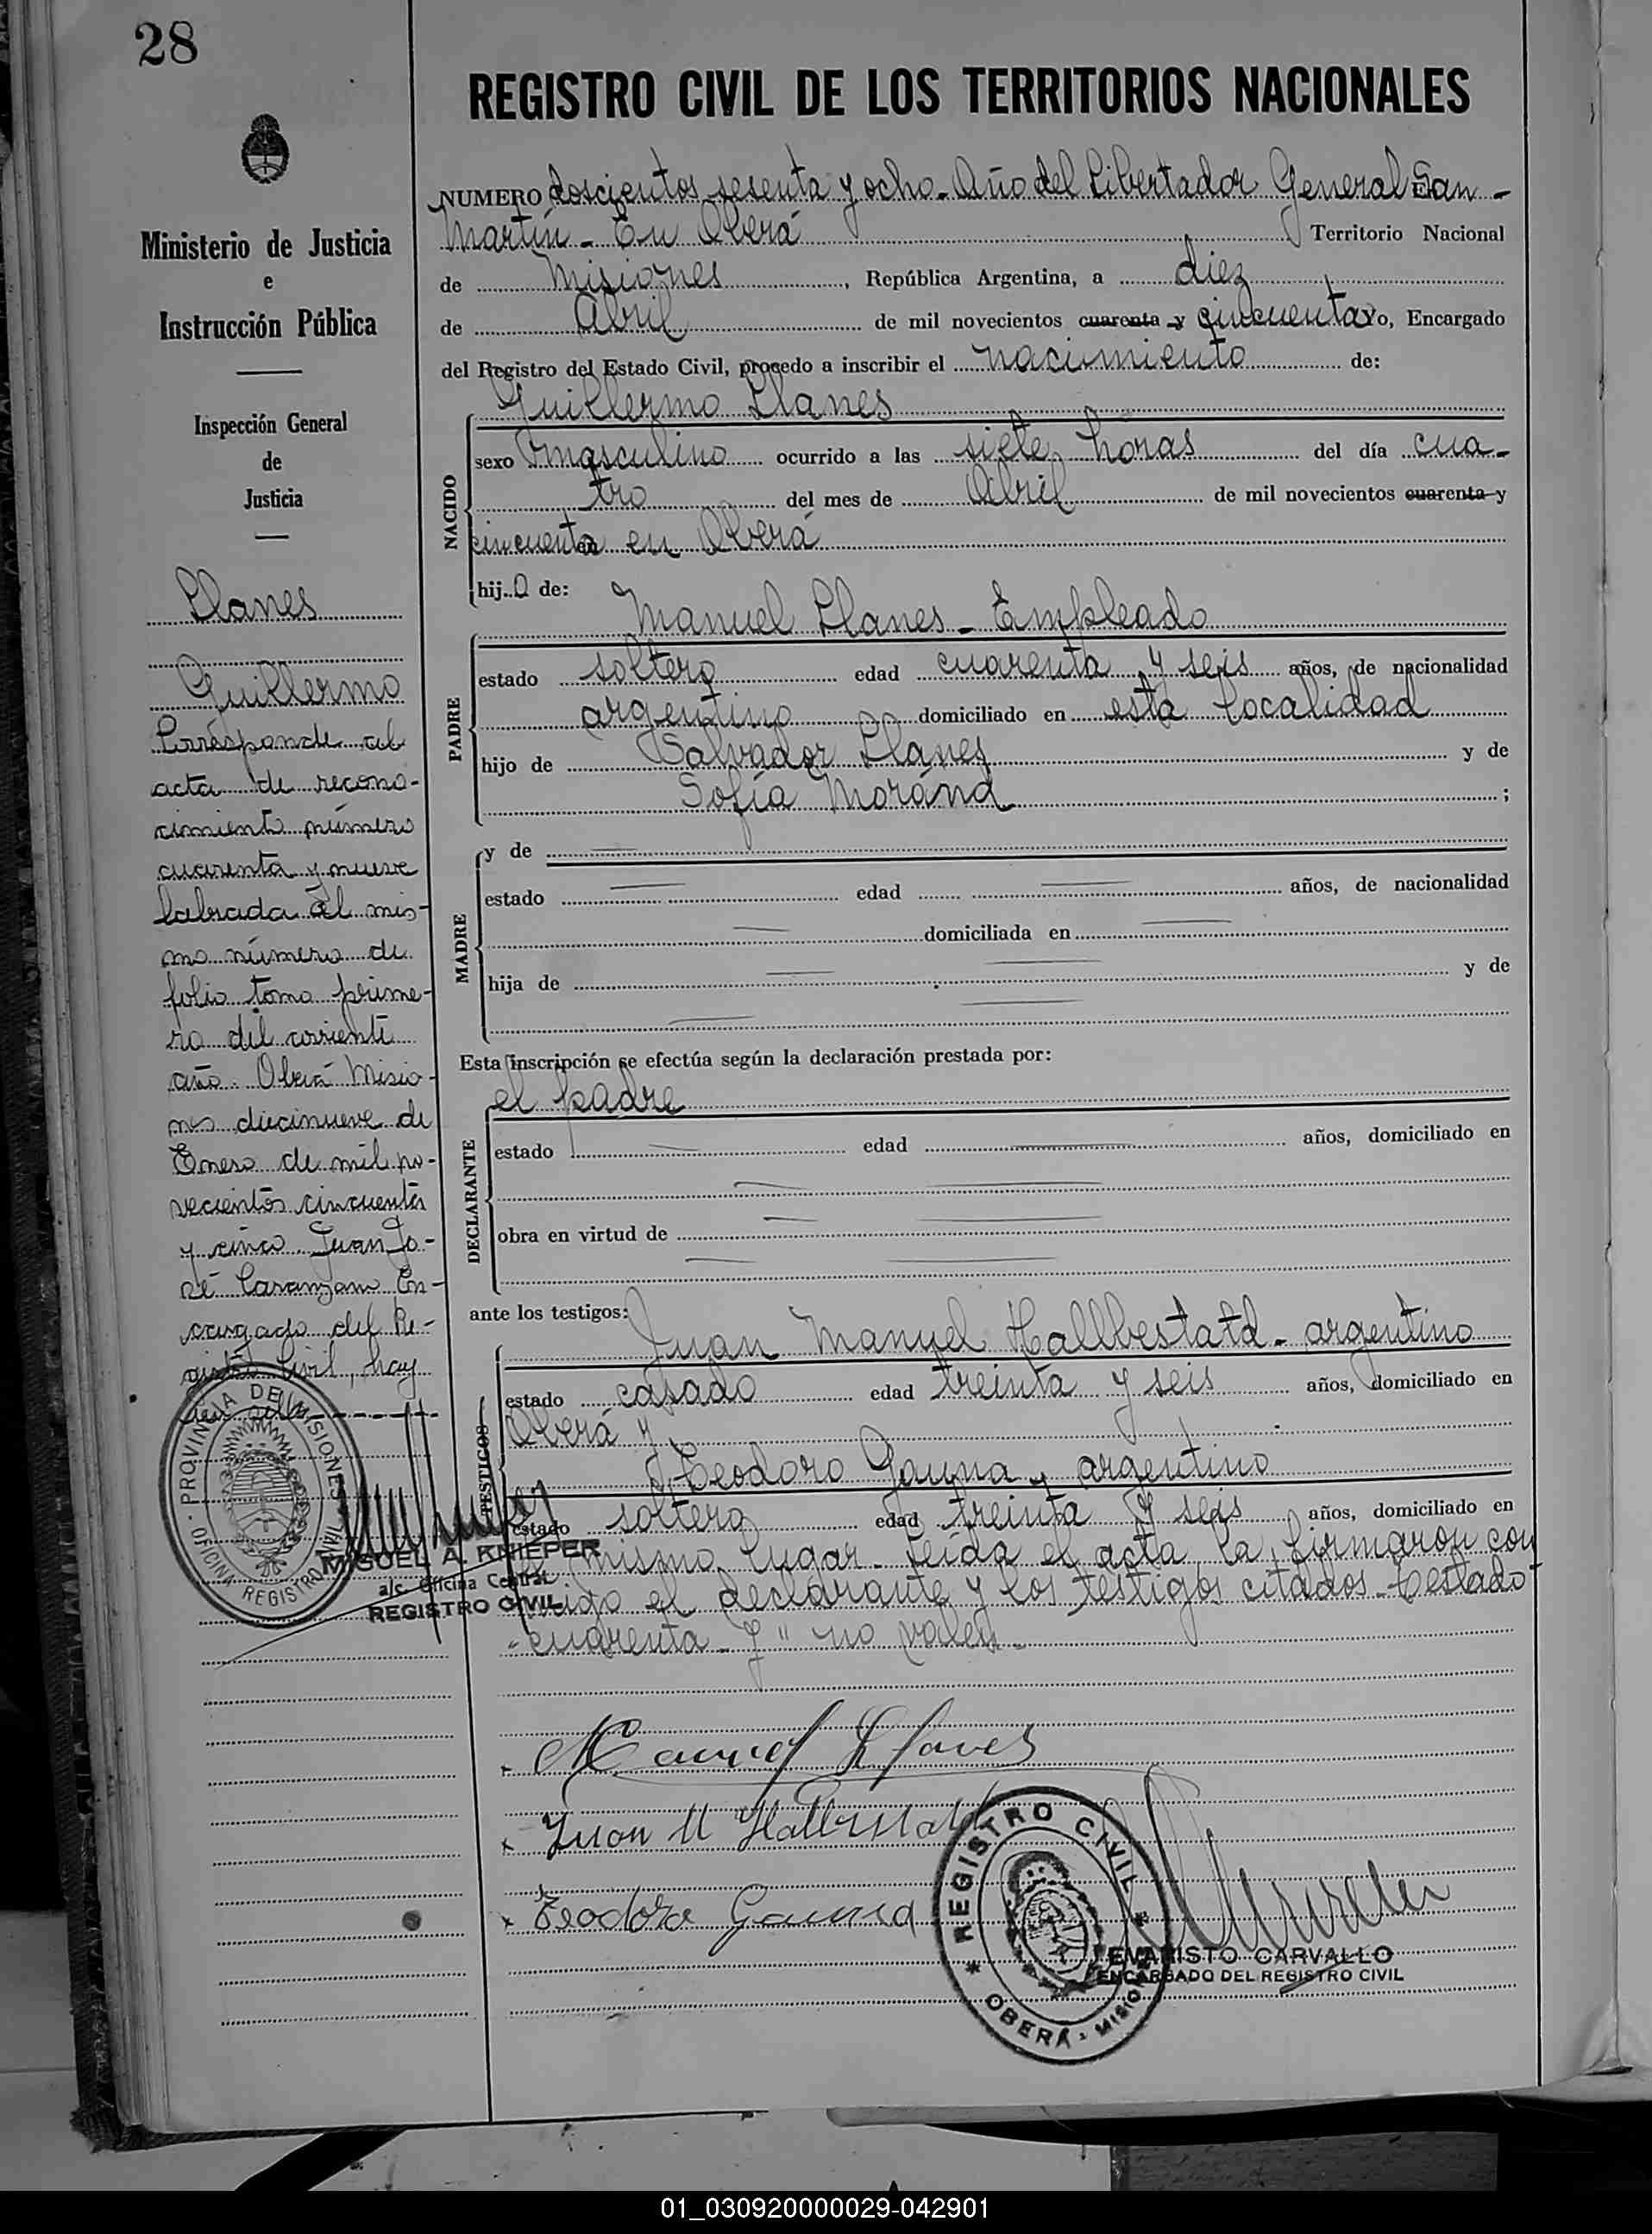 28
REGISTRO CIVIL DE LOS TERRITORIOS NACIONALES
Ministerio de Justicia
e
Instrucción Pública
Inspección General
de
Justicia
Llanes
Guillermo
Corresponde al
acta de recono-
cimiento número
cuarenta y nueve
labrada al mis-
mo número de
folio tomo prime-
ro del corriente
año. Oberá Misio-
nes diecinueve de
Enero de mil no-
vecientos cincuenta
y cinco. Juan Jo-
sé En-
cargado del Re-
gistro Civil, hay
un sello
PROVINCIA DE MISIONES
OFICINA REGISTRO CIVIL
MIGUEL A. KNIEPER
a/c. Oficina Central
REGISTRO CIVIL
NUMERO doscientos sesenta y ocho - Año del Libertador General San -
Martín - En Oberá Territorio Nacional
de Misiones, República Argentina, a diez
de Abril de mil novecientos cuarenta y cincuenta yo, Encargado
del Registro del Estado Civil, procedo a inscribir el nacimiento de:
Guillermo Llanes
NACIDO
sexo masculino ocurrido a las siete horas del día cua-
tro del mes de Abril de mil novecientos cuarenta y
cincuenta en Oberá
hijo de:
Manuel Llanes - Empleado
PADRE
estado soltero edad cuarenta y seis años, de nacionalidad
argentino domiciliado en esta localidad
hijo de Salvador Llanes y de
Sofía Moránd ;
MADRE
y de
estado edad años, de nacionalidad
domiciliada en
hija de y de
Esta inscripción se efectúa según la declaración prestada por:
el padre
DECLARANTE
estado edad años, domiciliado en
obra en virtud de
ante los testigos:
Juan Manuel Hallbestatd - argentino
TESTIGOS
estado casado edad treinta y seis años, domiciliado en
Oberá y
Teodoro Gauna y argentino
estado soltero edad treinta y seis años, domiciliado en
mismo lugar - Leída el acta la firmaron con
migo el declarante y los testigos citados - Testado
"cuarenta - y" no valen -
Manuel Llanes
Juan M Hallerstatd
Teodoro Gauna
REGISTRO CIVIL
OBERÁ - MISIONES
EVARISTO CARVALLO
ENCARGADO DEL REGISTRO CIVIL
01_030920000029-042901